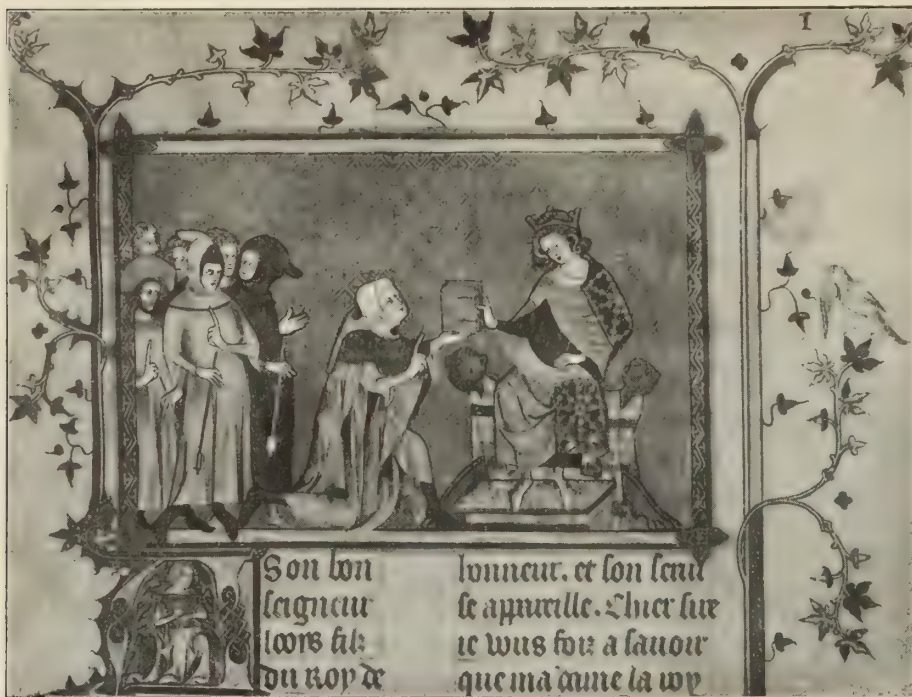 I
A Son bon
seigneur
looys filz
du roy de
honneur. et son serui
se appareille. Chier sire
ie vous foiz a sauoir
que ma dame la roy